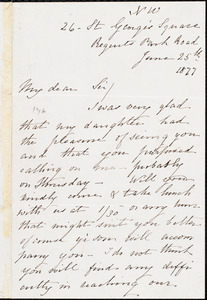 N W
26 - St. George's Square
Regents Park Road
June 25th
1877
My dear Sir/
I was very glad
that my daughter had
the pleasure of seeing you
and that you proposed
calling on me - probably
on Thursday - Will you
kindly come & take lunch
with us at 1/30 or any hour
that might suit you better
of course yr son will accom
pany you - I do not think
you will find any diffi
culty in reaching our